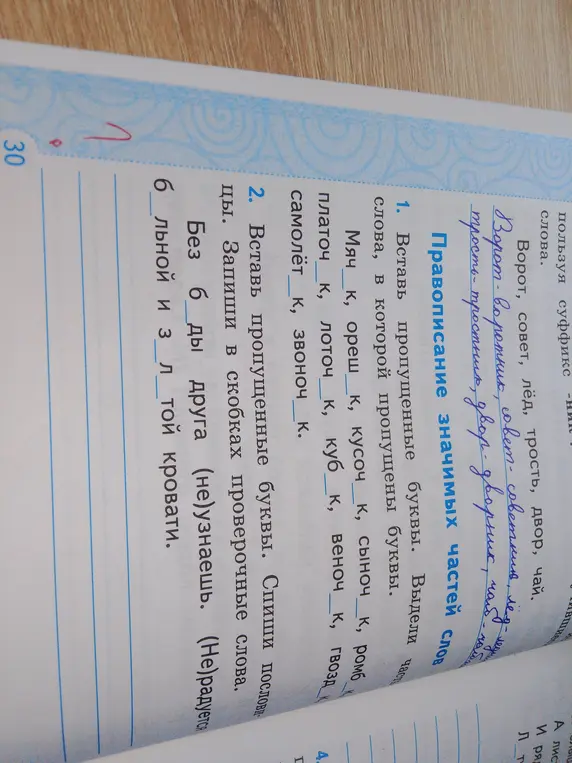 пользуя суффикс -ник-
слова.
Ворот, совет, лёд, трость, двор, чай.
Ворот-воротник, совет-советник, лёд-
трость-тростник, двор-дворник, чай-
Правописание значимых частей слов
1. Вставь пропущенные буквы. Выдели
слова, в которой пропущены буквы.
Мяч_к, ореш_к, кусоч_к, сыноч_к, ромб_
платоч_к, лоточ_к, куб_к, веноч_к, гвозд_
самолёт_к, звоноч_к.
2. Вставь пропущенные буквы. Спиши послови-
цы. Запиши в скобках проверочные слова.
Без б_ды друга (не)узнаешь. (Не)радуется
б_льной и з_л_той кровати.
30
4.
А
И
Л